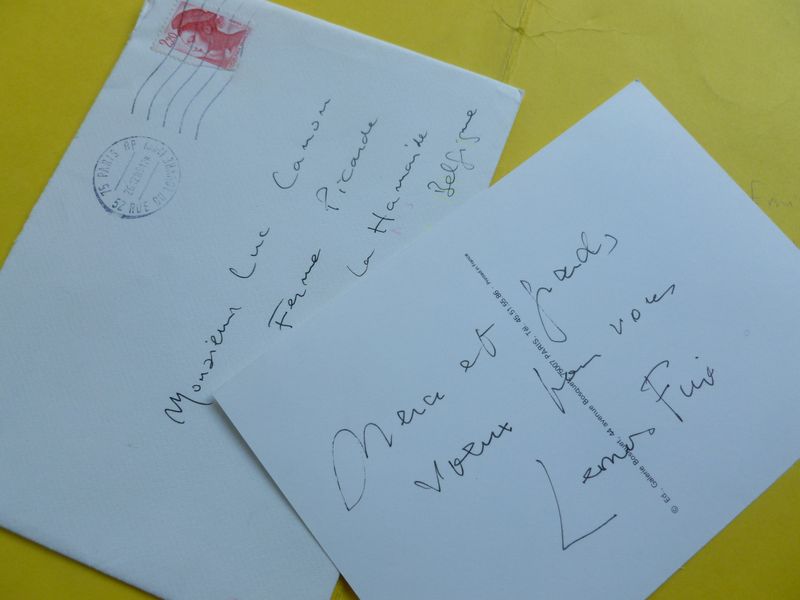 2,20
75 PARIS BP
52 RUE DU LOUVRE
Monsieur Luc Canon
Ferme Picarde
La Hamaide
Belgique
Merci et grands
vœux pour vous
Leonor Fini
© Ed., Galerie Bosquet, 44 avenue Bosquet, 75007 PARIS, Tél. 45.51.55.86 - Printed in France